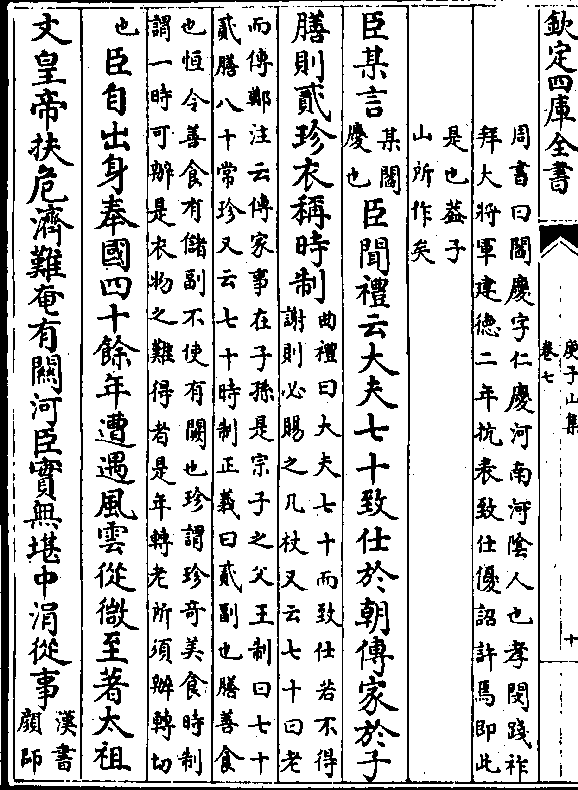 欽定四庫全書
庾子山集
卷七
十
周書曰閻慶字仁慶河南河陰人也孝閔踐祚
拜大將軍建德二年抗表致仕優詔許焉即此
是也葢子
山所作矣
臣某言
某閻
慶也
臣聞禮云大夫七十致仕於朝傳家於子
膳則貳珍衣稱時制
曲禮曰大夫七十而致仕若不得
謝則必賜之几杖又云七十曰老
而傳鄭注云傳家事在子孫是宗子之父王制曰七十
貳膳八十常珍又云七十時制正義曰貳副也膳善食
也恒令善食有儲副不使有闕也珍謂珍奇美食時制
謂一時可辦是衣物之難得者是年轉老所須辦轉切
也
臣自出身奉國四十餘年遭遇風雲從微至著太祖
文皇帝扶危濟難奄有關河臣實無堪中涓從事
漢書
顔師